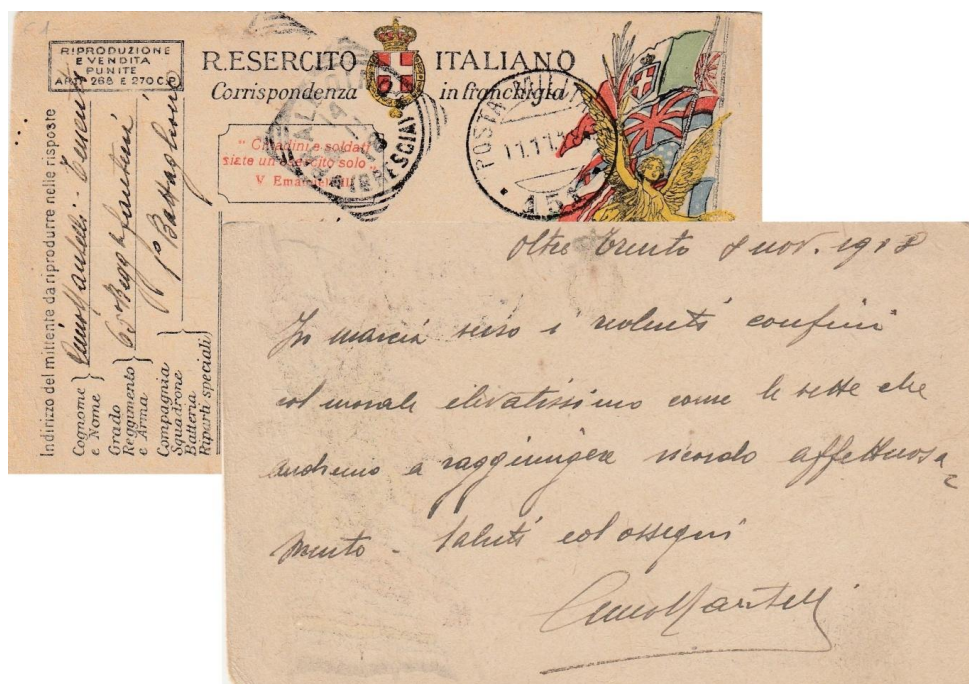 RIPRODUZIONE
E VENDITA
PUNITE
ART. 268 E 270 C.P.
R. ESERCITO ITALIANO
Corrispondenza in franchigia
"Cittadini e soldati
siate un esercito solo"
V. Emanuele III
POSTA MILITARE
11.11.
Indirizzo del mittente da riprodurre nelle risposte
Cognome
e Nome } Tenente
Grado
Reggimento
e Arma } fanteria
Compagnia
Squadrone
Batteria
Riparti speciali } Battaglione
Oltre Trento 8 nov. 1918
In marcia verso i confini
col morale elevatissimo come le vette che
andremo a raggiungere ricordo affettuosa-
mente - Saluti ed ossequi